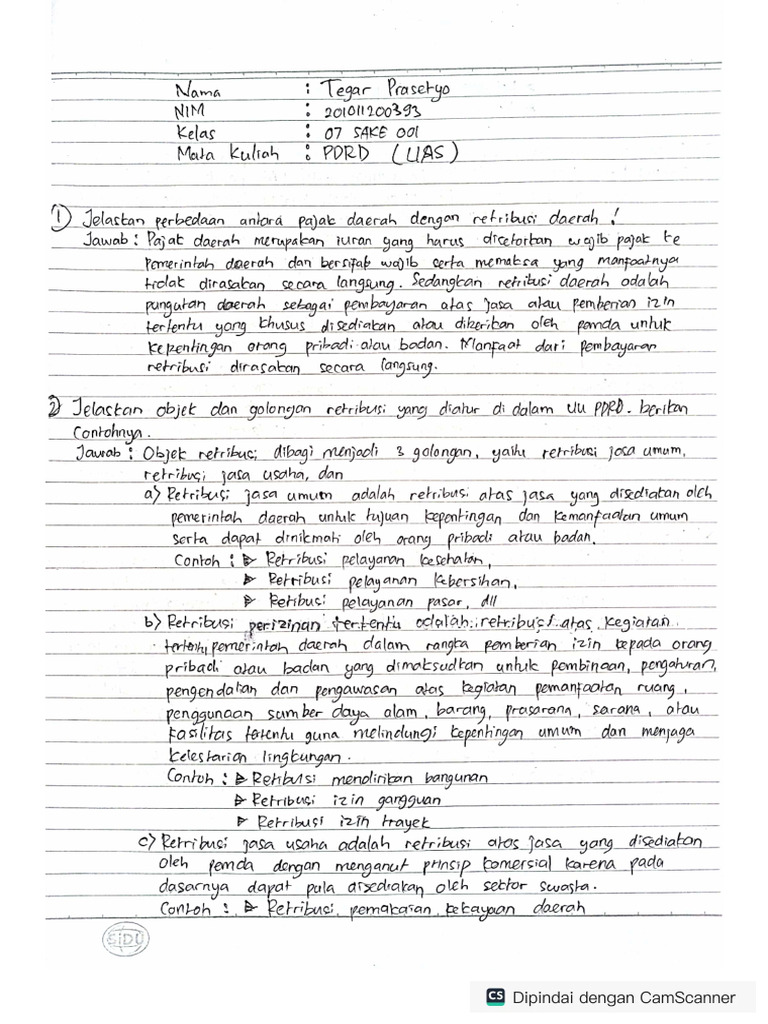 Nama : Tegar Prasetyo
NIM : 201011200393
Kelas : 07 SAKE 001
Mata Kuliah : PDRD (UAS)
1) Jelaskan perbedaan antara pajak daerah dengan retribusi daerah!
Jawab : Pajak daerah merupakan iuran yang harus disetorkan wajib pajak ke
pemerintah daerah dan bersifat wajib serta memaksa yang manfaatnya
tidak dirasakan secara langsung. Sedangkan retribusi daerah adalah
pungutan daerah sebagai pembayaran atas jasa atau pemberian izin
tertentu yang khusus disediakan atau diberikan oleh pemda untuk
kepentingan orang pribadi atau badan. Manfaat dari pembayaran
retribusi dirasakan secara langsung.
2) Jelaskan objek dan golongan retribusi yang diatur di dalam UU PDRD. berikan
Contohnya.
Jawab : Objek retribusi dibagi menjadi 3 golongan, yaitu retribusi jasa umum,
retribusi jasa usaha, dan
a) Retribusi jasa umum adalah retribusi atas jasa yang disediakan oleh
pemerintah daerah untuk tujuan kepentingan dan kemanfaatan umum
serta dapat dinikmati oleh orang pribadi atau badan.
Contoh : ➢ Retribusi pelayanan kesehatan,
➢ Retribusi pelayanan kebersihan,
➢ Retibusi pelayanan pasar, dll
b) Retribusi perizinan tertentu adalah retribusi atas kegiatan
tertentu pemerintah daerah dalam rangka pemberian izin kepada orang
pribadi atau badan yang dimaksudkan untuk pembinaan, pengaturan,
pengendalian dan pengawasan atas kegiatan pemanfaatan ruang,
penggunaan sumber daya alam, barang, prasarana, sarana, atau
fasilitas tertentu guna melindungi kepentingan umum dan menjaga
kelestarian lingkungan.
Contoh : ➢ Retibusi mendirikan bangunan
➢ Retribusi izin gangguan
➢ Retribusi izin trayek
c) Retribusi jasa usaha adalah retribusi atas jasa yang disediakan
oleh pemda dengan menganut prinsip komersial karena pada
dasarnya dapat pula disediakan oleh sektor swasta.
Contoh : ➢ Retribusi pemakaian kekayaan daerah
SiDU
CS Dipindai dengan CamScanner